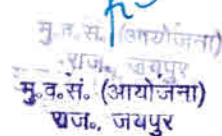 मु.व.सं. (आयोजना)
राज., जयपुर
मु.व.सं. (आयोजना)
राज., जयपुर